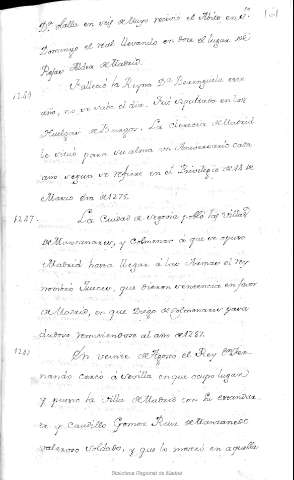 101
Dª. Salla en seis de Mayo vecino el Abito en Sto.
Domingo el real llevando en dote el lugar de
Rejas Aldea de Madrid.
Falleció la Reyna Dª Berenguela este
año, no se sabe el dia. Fue sepultada en las
Huelgas de Burgos. La clerecia de Madrid
la situó para su alma un Aniversario cada
año segun se refiere en el Privilegio de 18 de
Marzo Era de 1275.
1247.
La Ciudad de Segovia pobló las Villas
de Manzanares, y Colmenar à que se opuso
Madrid hasta llegar á las Armas el rey
nombró Jueces, que dieron sentencia en favor
de Madrid, en que Diego de Colmenares para
dubios remitiendose al año de 1287.
En veinte de Agosto el Rey Dn. Fer-
nando cercó à Sevilla en que ocupó lugar
y puesto la Villa de Madrid con su
y Caudillo Gomez Ruiz de Manzanedo
valeroso soldado, y que lo mostró en aquella
Biblioteca Regional de Madrid